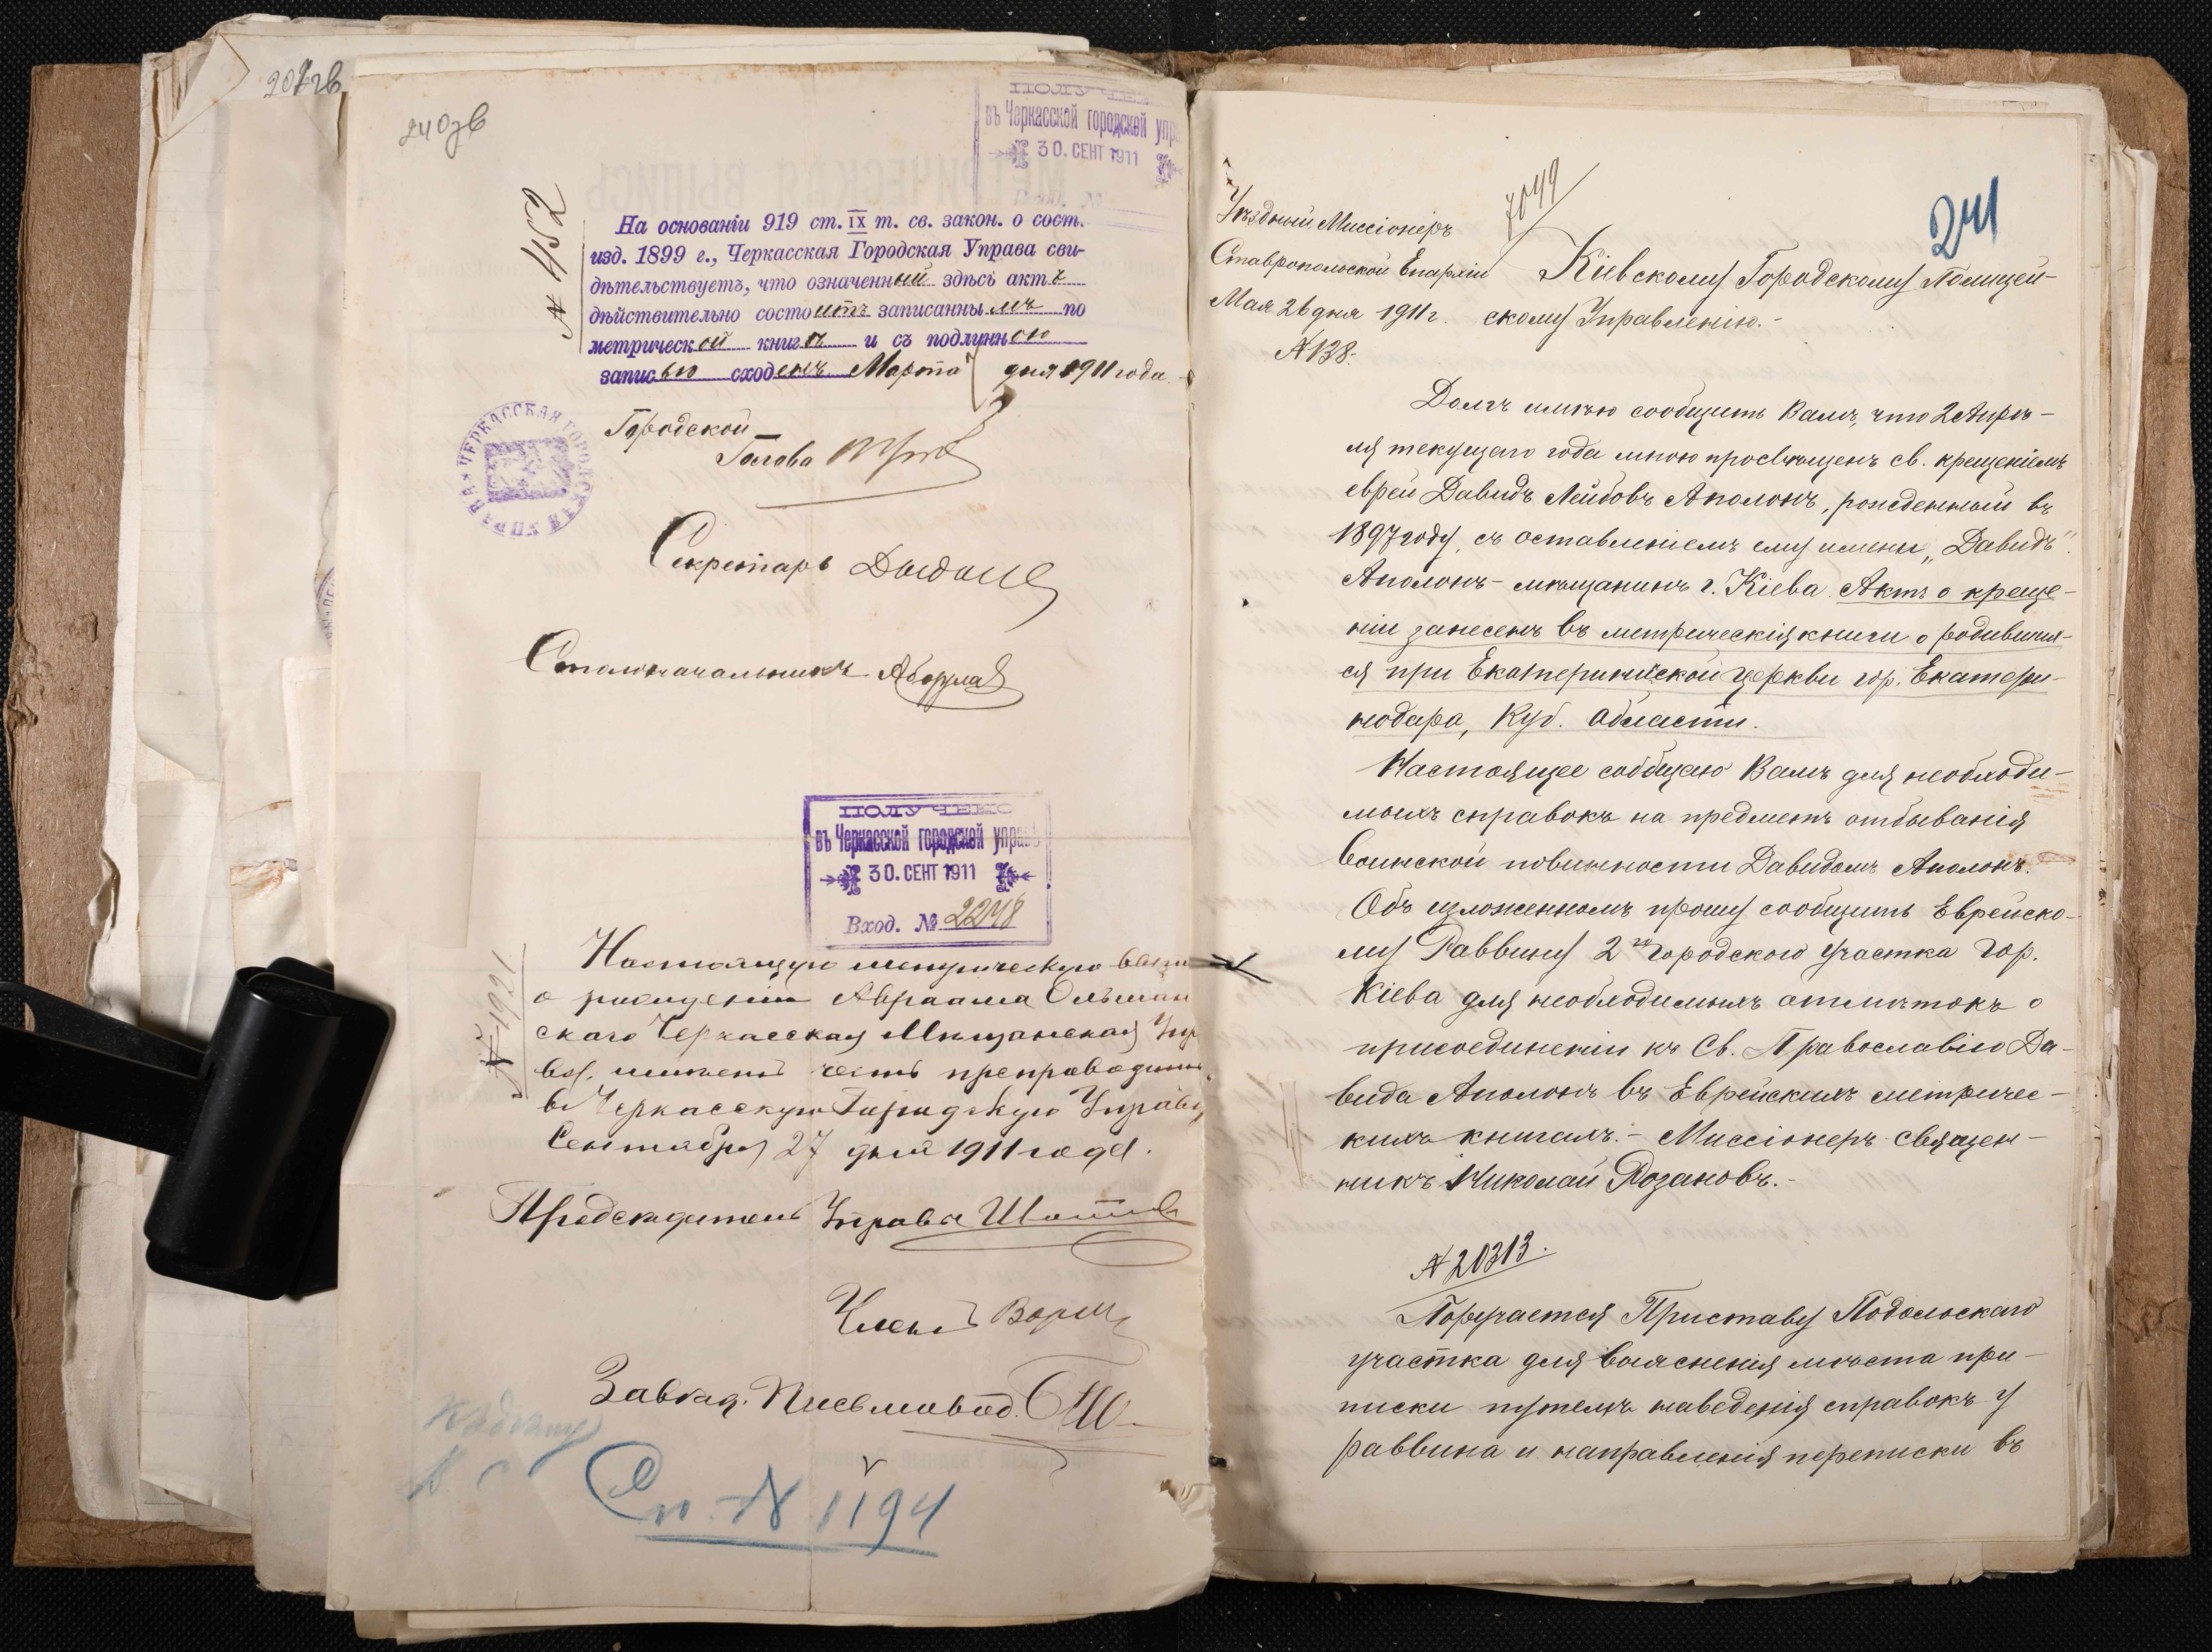 240зв
ПОЛУЧЕ
въ Черкасской городской упр
30. СЕНТ 1911
№ 452
На основаніи 919 ст. IX т. св. закон. о сост.
изд. 1899 г., Черкасская Городская Управа сви-
дѣтельствуетъ, что означенный здѣсь актъ
дѣйствительно состоитъ записаннымъ по
метрической книгѣ и съ подлинною
записью сходенъ. Марта дня 1911 года.
Городской
Голова
Секретарь
Столоначальникъ
ПОЛУЧЕНО
въ Черкасской городской управѣ
30. СЕНТ 1911
Вход. № 2248
Настоящую метрическую выпи
о рожденіи Авраама Ольшан
скаго Черкасская Мѣщанская Упр
ва, имѣетъ честь препроводить
въ Черкасскую Городскую Управу
Сентября 27 дня 1911 года.
Предсѣдатель Управы
Членъ
Завѣд. Письмовод.
Сп. № 1194
241
7049
Уѣздный Миссіонеръ
Ставропольской Епархіи
Мая 26 дня 1911 г.
№ 138.
Кіевскому Городскому Полицей-
скому Управленію.-
Долгъ имѣю сообщить Вамъ, что 2 Апрѣ-
ля текущаго года мною просвѣщенъ св. крещеніемъ
еврей Давидъ Лейбовъ Аполонъ, рожденный въ
1897 году, съ оставленіемъ ему имени „Давидъ“.
Аполонъ - мѣщанинъ г. Кіева. Актъ о креще-
ніи занесенъ въ метрическія книги о родивших-
ся при Екатерининской церкви гор. Екатери-
нодара, Куб. области.
Настоящее сообщаю Вамъ для необходи-
мыхъ справокъ на предметъ отбыванія
воинской повинности Давидомъ Аполонъ.
Объ изложенномъ прошу сообщить Еврейско-
му Раввину 2го Городского участка гор.
Кіева для необходимыхъ отмѣтокъ о
присоединеніи къ Св. Православію Да-
вида Аполонъ въ Еврейскихъ метричес-
кихъ книгахъ.- Миссіонеръ Священ-
никъ Николай Розановъ.-
№ 20313.
Поручается Приставу Подольскаго
участка для выясненія мѣста при-
писки путемъ наведенія справокъ у
раввина и направленія переписки въ